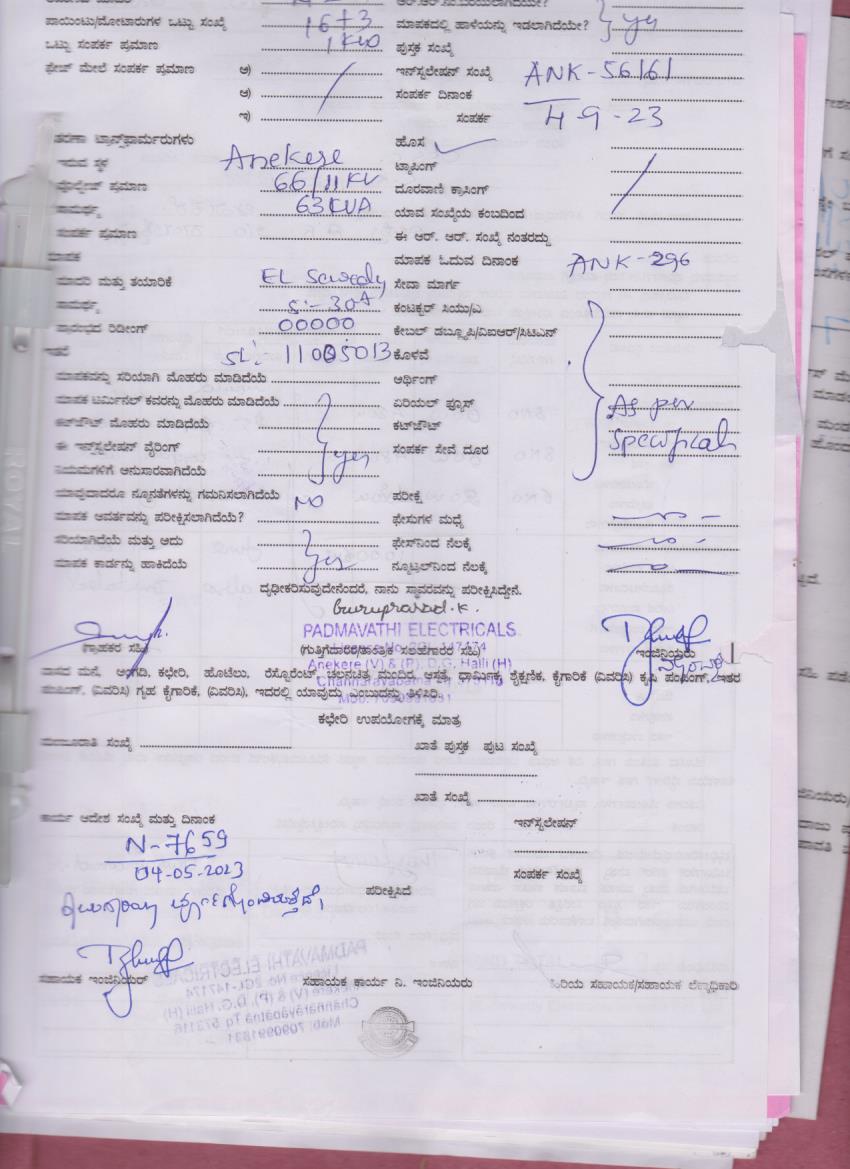 ಪಾಯಿಂಟು/ಮೋಟಾರುಗಳ ಒಟ್ಟು ಸಂಖ್ಯೆ 1673 ಮಾಪಕದಲ್ಲಿ ಹಾಳೆಯನ್ನು ಇಡಲಾಗಿದೆಯೇ? yes
ಒಟ್ಟು ಸಂಪರ್ಕ ಪ್ರಮಾಣ 1KW ಪುಸ್ತಕ ಸಂಖ್ಯೆ
ಫೇಜ್ ಮೇಲೆ ಸಂಪರ್ಕ ಪ್ರಮಾಣ ಅ) ಇನ್‌ಸ್ಟಲೇಷನ್ ಸಂಖ್ಯೆ ANK-56161
ಆ) ಸಂಪರ್ಕ ದಿನಾಂಕ
ಇ) ಸಂಪರ್ಕ 4-9-23
ವಿತರಣಾ ಟ್ರಾನ್ಸ್‌ಫಾರ್ಮರುಗಳು ಹೊಸ
ಇರುವ ಸ್ಥಳ Anekere ಟ್ಯಾಪಿಂಗ್
ವೊಲ್ಟೇಜ್ ಪ್ರಮಾಣ 66/11KV ದೂರವಾಣಿ ಕ್ರಾಸಿಂಗ್
ಸಾಮರ್ಥ್ಯ 63KVA ಯಾವ ಸಂಖ್ಯೆಯ ಕಂಬದಿಂದ
ಸಂಪರ್ಕ ಪ್ರಮಾಣ ಈ ಆರ್. ಆರ್. ಸಂಖ್ಯೆ ನಂತರದ್ದು
ಮಾಪಕ ಮಾಪಕ ಓದುವ ದಿನಾಂಕ ANK-296
ಮಾದರಿ ಮತ್ತು ತಯಾರಿಕೆ EL Sewedy ಸೇವಾ ಮಾರ್ಗ
ಸಾಮರ್ಥ್ಯ 5:-30A ಕಂಟಕ್ಟರ್ ಸಿಯು/ಎ
ಪ್ರಾರಂಭದ ರಿಡೀಂಗ್ 00000 ಕೇಬಲ್ ಡಬ್ಲ್ಯೂಪಿ/ವಿಐಆರ್/ಸಿಟಿಎನ್
ಇತರೆ SL: 11005013 ಕೊಳವೆ
ಮಾಪಕವನ್ನು ಸರಿಯಾಗಿ ಮೊಹರು ಮಾಡಿದೆಯೆ ಅರ್ಥಿಂಗ್
ಮಾಪಕ ಟರ್ಮಿನಲ್ ಕವರನ್ನು ಮೊಹರು ಮಾಡಿದೆಯೆ ಏರಿಯಲ್ ಫ್ಯೂಸ್ As per
ಕಟ್‌ಔಟ್ ಮೊಹರು ಮಾಡಿದೆಯೆ ಕಟ್‌ಔಟ್
ಈ ಇನ್‌ಸ್ಟಲೇಷನ್ ವೈರಿಂಗ್ yes ಸಂಪರ್ಕ ಸೇವೆ ದೂರ
ನಿಯಮಗಳಿಗೆ ಅನುಸಾರವಾಗಿದೆಯೆ
ಯಾವುದಾದರೂ ನ್ಯೂನತೆಗಳನ್ನು ಗಮನಿಸಲಾಗಿದೆಯೆ NO ಪರೀಕ್ಷೆ
ಮಾಪಕ ಆವರ್ತವನ್ನು ಪರೀಕ್ಷಿಸಲಾಗಿದೆಯೆ? ಫೇಸುಗಳ ಮಧ್ಯೆ
ಸರಿಯಾಗಿದೆಯೆ ಮತ್ತು ಅದು ಫೇಸ್‌ನಿಂದ ನೆಲಕ್ಕೆ
ಮಾಪಕ ಕಾರ್ಡನ್ನು ಹಾಕಿದೆಯೆ yes ನ್ಯೂಟ್ರಲ್‌ನಿಂದ ನೆಲಕ್ಕೆ
ದೃಢೀಕರಿಸುವುದೇನೆಂದರೆ, ನಾನು ಸ್ಥಾವರವನ್ನು ಪರೀಕ್ಷಿಸಿದ್ದೇನೆ.
Guruprasad.K.
PADMAVATHI ELECTRICALS
(ಗ್ರಾಹಕರ ಸಹಿ) (ಗುತ್ತಿಗೆದಾರರ/ತಾಂತ್ರಿಕ ಸಲಹೆಗಾರರ ಸಹಿ) ಇಂಜಿನಿಯರು
Anekere (V) & (P), D.G. Halli (H)
ವಾಸದ ಮನೆ, ಅಂಗಡಿ, ಕಛೇರಿ, ಹೊಟೆಲು, ರೆಸ್ಟೊರೆಂಟ್ ಚಲನಚಿತ್ರ ಮಂದಿರ, ಆಸ್ಪತ್ರೆ, ಧಾರ್ಮಿಕ, ಶೈಕ್ಷಣಿಕ, ಕೈಗಾರಿಕೆ (ವಿವರಿಸಿ) ಕೃಷಿ ಪಂಪಿಂಗ್, ಇತರ
ಪಂಪಿಂಗ್, (ವಿವರಿಸಿ) ಗೃಹ ಕೈಗಾರಿಕೆ, (ವಿವರಿಸಿ), ಇದರಲ್ಲಿ ಯಾವುದು ಎಂಬುದನ್ನು ತಿಳಿಸಿರಿ.
ಕಛೇರಿ ಉಪಯೋಗಕ್ಕೆ ಮಾತ್ರ
ಮಂಜೂರಾತಿ ಸಂಖ್ಯೆ ಖಾತೆ ಪುಸ್ತಕ ಪುಟ ಸಂಖ್ಯೆ
ಖಾತೆ ಸಂಖ್ಯೆ
ಕಾರ್ಯ ಆದೇಶ ಸಂಖ್ಯೆ ಮತ್ತು ದಿನಾಂಕ ಇನ್‌ಸ್ಟಲೇಷನ್
N-7659
04-05-2023 ಸಂಪರ್ಕ ಸಂಖ್ಯೆ
ಪರೀಕ್ಷಿಸಿದೆ
ಸಹಾಯಕ ಇಂಜಿನಿಯರ್ ಸಹಾಯಕ ಕಾರ್ಯ ನಿ. ಇಂಜಿನಿಯರು ಹಿರಿಯ ಸಹಾಯಕ/ಸಹಾಯಕ ಲೆಕ್ಕಾಧಿಕಾರಿ